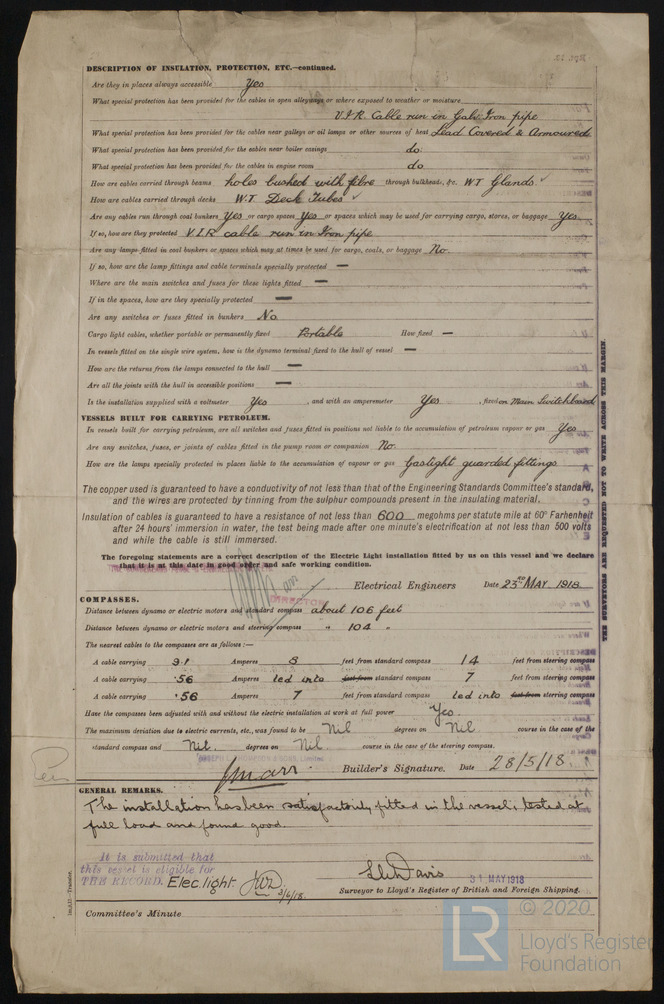 DESCRIPTION OF INSULATION, PROTECTION, ETC.—continued.
Are they in places always accessible Yes
What special protection has been provided for the cables in open alleyways or where exposed to weather or moisture
V.I.R. Cable run in Galv: Iron pipe
What special protection has been provided for the cables near galleys or oil lamps or other sources of heat Lead Covered & Armoured
What special protection has been provided for the cables near boiler casings do.
What special protection has been provided for the cables in engine room do
How are cables carried through beams holes bushed with fibre through bulkheads, &c. W.T Glands. ✓
How are cables carried through decks W.T Deck Tubes ✓
Are any cables run through coal bunkers Yes or cargo spaces Yes or spaces which may be used for carrying cargo, stores, or baggage Yes.
If so, how are they protected V.I.R cable run in Iron pipe
Are any lamps fitted in coal bunkers or spaces which may at times be used for cargo, coals, or baggage No.
If so, how are the lamp fittings and cable terminals specially protected —
Where are the main switches and fuses for these lights fitted —
If in the spaces, how are they specially protected —
Are any switches or fuses fitted in bunkers No
Cargo light cables, whether portable or permanently fixed Portable How fixed —
In vessels fitted on the single wire system, how is the dynamo terminal fixed to the hull of vessel —
How are the returns from the lamps connected to the hull —
Are all the joints with the hull in accessible positions —
Is the installation supplied with a voltmeter Yes , and with an amperemeter Yes , fixed on Main Switchboard
VESSELS BUILT FOR CARRYING PETROLEUM.
In vessels built for carrying petroleum, are all switches and fuses fitted in positions not liable to the accumulation of petroleum vapour or gas Yes
Are any switches, fuses, or joints of cables fitted in the pump room or companion No.
How are the lamps specially protected in places liable to the accumulation of vapour or gas Gastight guarded fittings
The copper used is guaranteed to have a conductivity of not less than that of the Engineering Standards Committee's standard,
and the wires are protected by tinning from the sulphur compounds present in the insulating material.
Insulation of cables is guaranteed to have a resistance of not less than 600 megohms per statute mile at 60° Farhenheit
after 24 hours' immersion in water, the test being made after one minute's electrification at not less than 500 volts
and while the cable is still immersed.
The foregoing statements are a correct description of the Electric Light installation fitted by us on this vessel and we declare
that it is at this date in good order and safe working condition.
DIRECTOR Electrical Engineers Date 23rd MAY 1918
COMPASSES.
Distance between dynamo or electric motors and standard compass about 106 feet
Distance between dynamo or electric motors and steering compass " 104 "
The nearest cables to the compasses are as follows:—
A cable carrying 31 Amperes 8 feet from standard compass 14 feet from steering compass
A cable carrying ·56 Amperes led into feet from standard compass 7 feet from steering compass
A cable carrying ·56 Amperes 7 feet from standard compass led into feet from steering compass
Have the compasses been adjusted with and without the electric installation at work at full power Yes
The maximum deviation due to electric currents, etc., was found to be Nil degrees on Nil course in the case of the
standard compass and Nil. degrees on Nil. course in the case of the steering compass.
JMarr Builder's Signature. Date 28/5/18.
GENERAL REMARKS.
The installation has been satisfactorily fitted in the vessel, tested at
full load and found good.
It is submitted that
this vessel is eligible for
THE RECORD. Elec. light. JWD 3/6/18.
31 MAY 1918
Surveyor to Lloyd's Register of British and Foreign Shipping.
Committee's Minute
THE SURVEYORS ARE REQUESTED NOT TO WRITE ACROSS THIS MARGIN.
© 2020
LR
Lloyd's Register
Foundation